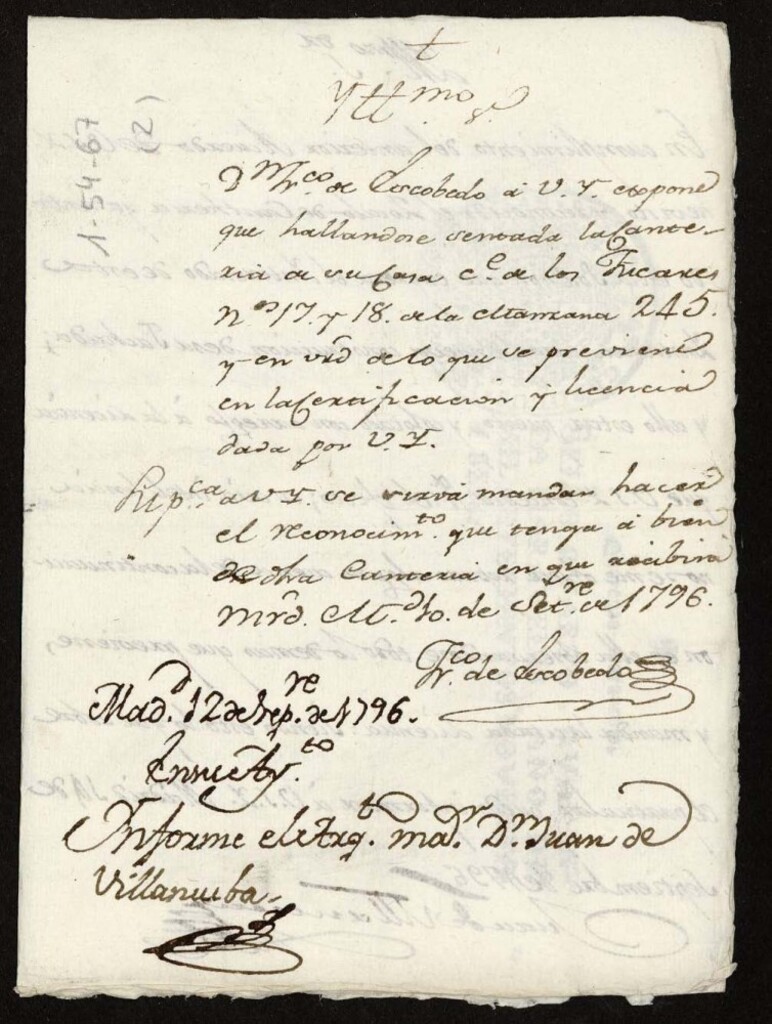 †
Yllmo Sr
Dn. Frco. de Escobedo à V. Y. expone
que hallandose sentada la Cante-
ria de su Casa ce. de los Fucares
nos. 17. y 18. de la Manzana 245.
y en vrd. de lo que se previene
en la Certificación y licencia
dada por V. Y.
Supca. a V. Y. se sirva mandar hacer
el reconocimto. que tenga à bien
de dha Canteria en que recibirà
mrd. Md. 10. de Setre. de 1796.
Frco. de Escobedo
Madd. 12 de Sepre. de 1796.
En su Aytto.
Informe el Arqt. mar. Dn. Juan de
Villanueba
1-54-67
(2)